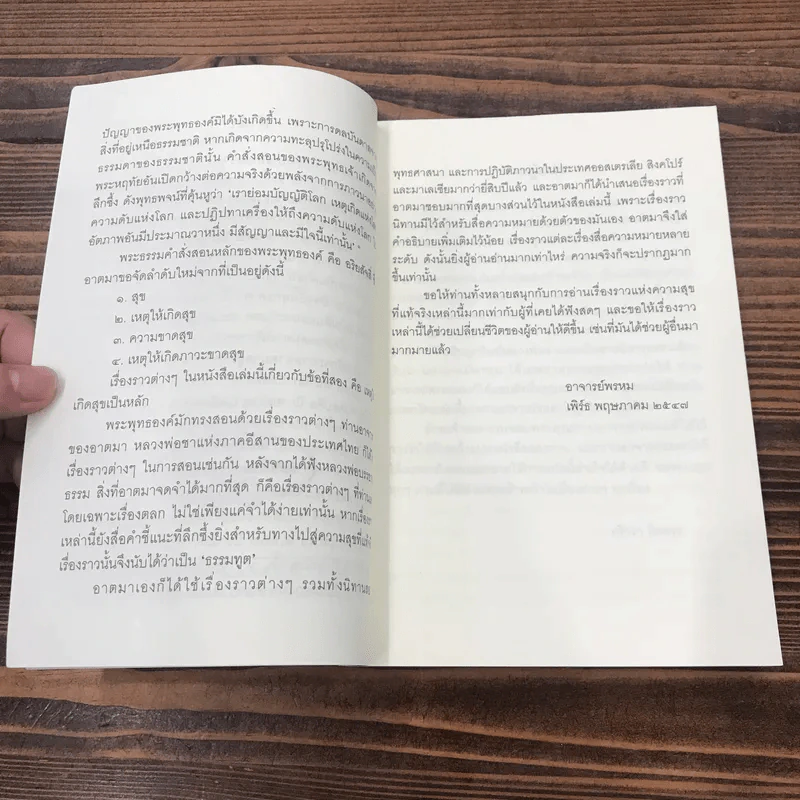 ปัญญาของพระพุทธองค์มิได้บังเกิดขึ้น เพราะการดลบันดาล
สิ่งที่อยู่เหนือธรรมชาติ หากเกิดจากความทะลุปรุโปร่งในความ
ธรรมดาของธรรมชาตินั้น คำสั่งสอนของพระพุทธเจ้าเกิด
พระหฤทัยอันเปิดกว้างต่อความจริงด้วยพลังจากการภาวนา
ลึกซึ้ง ดังพุทธพจน์ที่คุ้นหูว่า ‘เราย่อมบัญญัติโลก เหตุเกิดแห่ง
ความดับแห่งโลก และปฏิปทาเครื่องให้ถึงความดับแห่งโลก
อัตภาพอันมีประมาณวาหนึ่ง มีสัญญาและมีใจนี้เท่านั้น’
พระธรรมคำสั่งสอนหลักของพระพุทธองค์ คือ อริยสัจสี่
อาตมาขอจัดลำดับใหม่จากที่เป็นอยู่ดังนี้
๑. สุข
๒. เหตุให้เกิดสุข
๓. ความขาดสุข
๔. เหตุให้เกิดภาวะขาดสุข
เรื่องราวต่างๆ ในหนังสือเล่มนี้เกี่ยวกับข้อที่สอง คือ
เกิดสุขเป็นหลัก
พระพุทธองค์มักทรงสอนด้วยเรื่องราวต่างๆ ท่านอาจาร
ของอาตมา หลวงพ่อชาแห่งภาคอีสานของประเทศไทย ก็
เรื่องราวต่างๆ ในการสอนเช่นกัน หลังจากได้ฟังหลวงพ่อบรร
ธรรม สิ่งที่อาตมาจดจำได้มากที่สุด ก็คือเรื่องราวต่างๆ ที่ท่าน
โดยเฉพาะเรื่องตลก ไม่ใช่เพียงแค่จำได้ง่ายเท่านั้น หากเรื่อง
เหล่านี้ยังสื่อคำชี้แนะที่ลึกซึ้งยิ่งสำหรับทางไปสู่ความสุขที่แท้
เรื่องราวนั้นจึงนับได้ว่าเป็น ‘ธรรมทูต’
อาตมาเองก็ได้ใช้เรื่องราวต่างๆ รวมทั้งนิทาน
พุทธศาสนา และการปฏิบัติภาวนาในประเทศออสเตรเลีย สิงคโปร์
และมาเลเซียมากว่ายี่สิบปีแล้ว และอาตมาก็ได้นำเสนอเรื่องราวที่
อาตมาชอบมากที่สุดบางส่วนไว้ในหนังสือเล่มนี้ เพราะเรื่องราว
นิทานมีไว้สำหรับสื่อความหมายด้วยตัวของมันเอง อาตมาจึงใส่
คำอธิบายเพิ่มเติมไว้น้อย เรื่องราวแต่ละเรื่องสื่อความหมายหลาย
ระดับ ดังนั้นยิ่งผู้อ่านอ่านมากเท่าใหร่ ความจริงก็จะปรากฏมาก
ขึ้นเท่านั้น
ขอให้ท่านทั้งหลายสนุกกับการอ่านเรื่องราวแห่งความสุข
ที่แท้จริงเหล่านี้มากเท่ากับผู้ที่เคยได้ฟังสดๆ และขอให้เรื่องราว
เหล่านี้ได้ช่วยเปลี่ยนชีวิตของผู้อ่านให้ดีขึ้น เช่นที่มันได้ช่วยผู้อื่นมา
มากมายแล้ว
อาจารย์พรหม
เพิร์ธ พฤษภาคม ๒๕๔๗